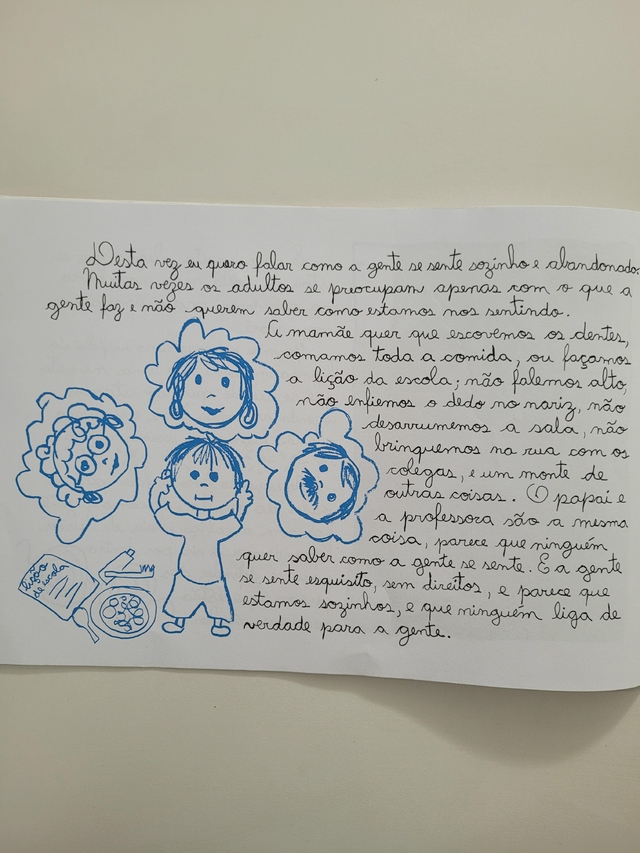 Desta vez eu quero falar como a gente se sente sozinho e abandonado.
Muitas vezes os adultos se preocupam apenas com o que a
gente faz e não querem saber como estamos nos sentindo.
A mamãe quer que escovemos os dentes,
comamos toda a comida, ou façamos
a lição da escola; não falemos alto,
não enfiemos o dedo no nariz, não
desarrumemos a sala, não
brinquemos na rua com os
colegas, e um monte de
outras coisas. O papai e
a professora são a mesma
coisa, parece que ninguém
quer saber como a gente se sente. E a gente
se sente esquisito, sem direitos, e parece que
estamos sozinhos, e que ninguém liga de
verdade para a gente.
lição
de escola